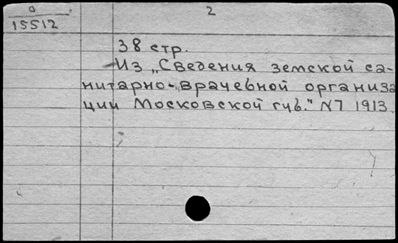 а 2
15512
38 стр.
Из „Сведения земской са-
нитарно-врачебной организа
ции Московской губ." №7 1913.